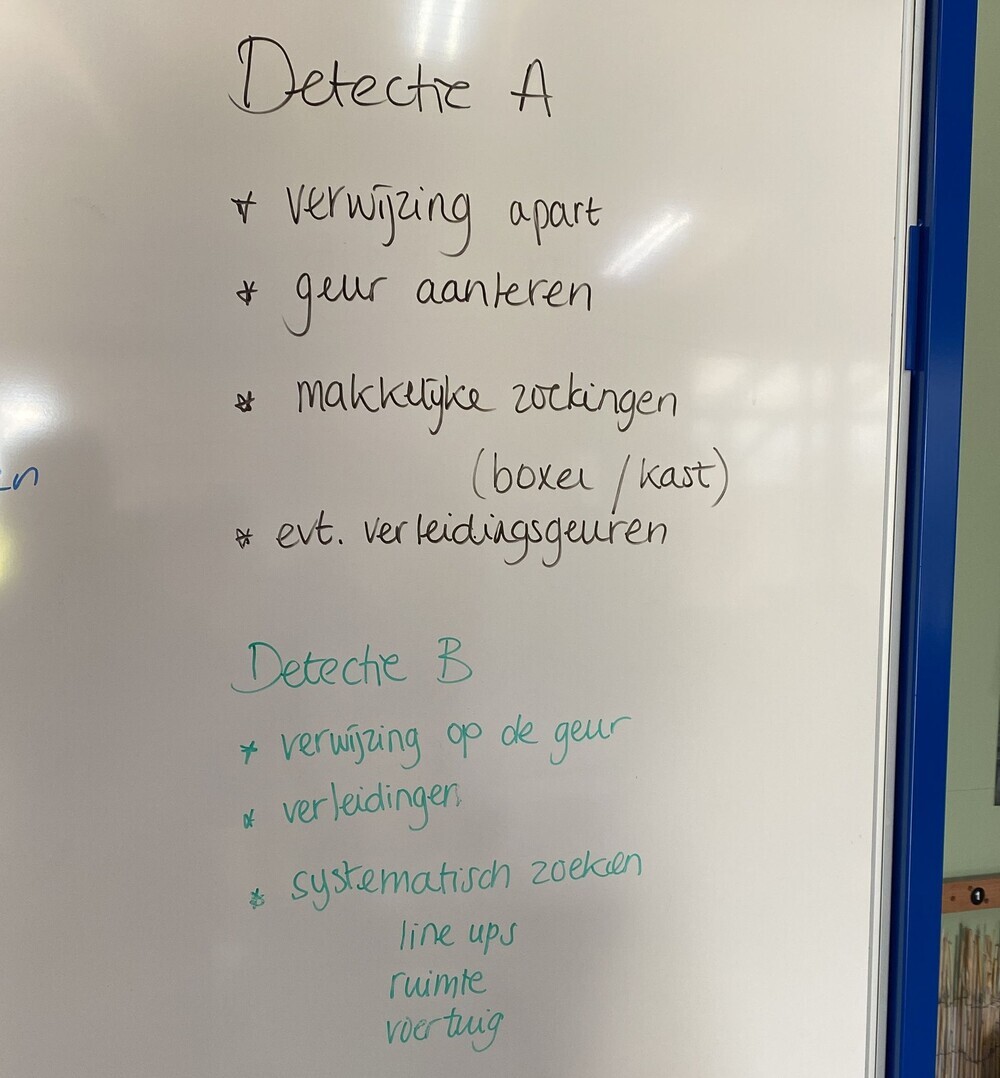 Detectie A
* verwijzing apart
* geur aanleren
* makkelijke zoekingen
(boxen / kast)
* evt. verleidingsgeuren
Detectie B
* verwijzing op de geur
* verleidingen
* systematisch zoeken
line ups
ruimte
voertuig
1